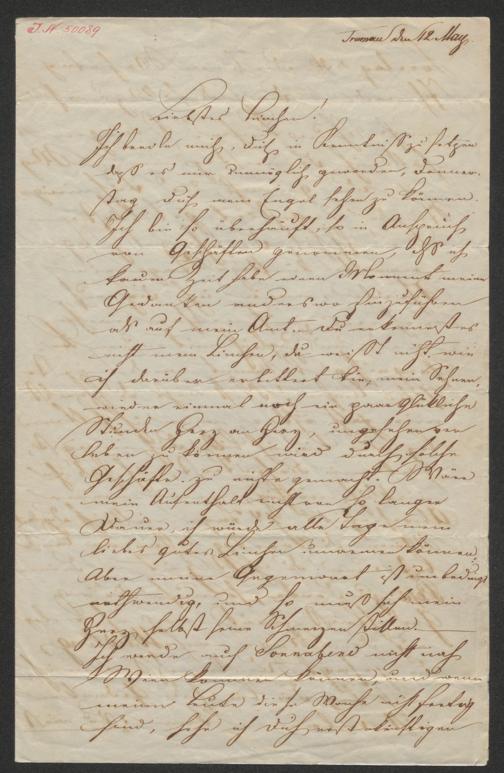 I.N. 50089
den 12 May.
Liebstes Linchen!
Ich beeile mich, dich in Kenntniss zu setzen
daß es mir unmöglich geworden, Donner-
stag dich mein Engel sehen zu können.
Ich bin so überhäuft, so in Anspruch
von Geschäften genommen, daß ich
kaum Zeit habe einen Moment meine
Gedanken anderswo hinzuführen
als auf mein Amt. Du erkennst es
nicht mein Linchen, du weißt nicht, wie
ich darüber erbittert bin, mein Sehnen,
wieder einmal noch ein paar glückliche
Stunden Herz an Herz, ungesehen
leben zu können wird durch solche
Geschäfte zu nichte gemacht. Wäre
mein Aufenthalt nicht von so langer
Dauer, ich würde alle Tage mein
liebes gutes Linchen können.
Aber meine Gegenwart ist unbedingt
nothwendig, und so muß sich mein
Herz selbst seine Schmerzen stillen.
Ich werde auch Sonnabend nicht nach
Wien kommen können und wenn
meine Leute diese Woche nicht fertig
sind, sehe ich dich erst künftigen